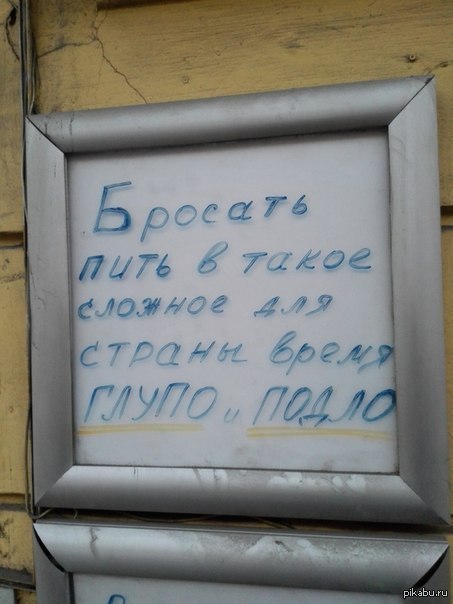 Бросать
пить в такое
сложное для
страны время
ГЛУПО и ПОДЛО
pikabu.ru